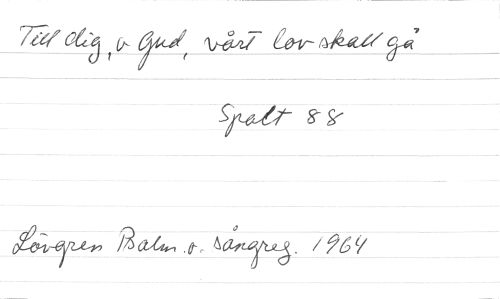 Till dig, o Gud, vårt lov skall gå
Spalt 88
Lövgren Psalm. o. sångreg. 1964